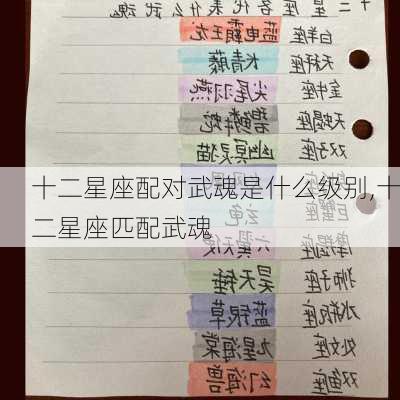 十二星座各代表什么武魂
白羊座 蓝电霸王龙
天秤座 青藤
金牛座 尖尾羽燕
天蝎座 碧鳞蛇
双子座 幽冥灵猫
十二星座配对武魂是什么级别,十
二星座匹配武魂
巨蟹座 玄龟
摩羯座 六翼天使
狮子座 昊天锤
水瓶座 蓝银草
处女座 九星海棠
双鱼座 幻海兽